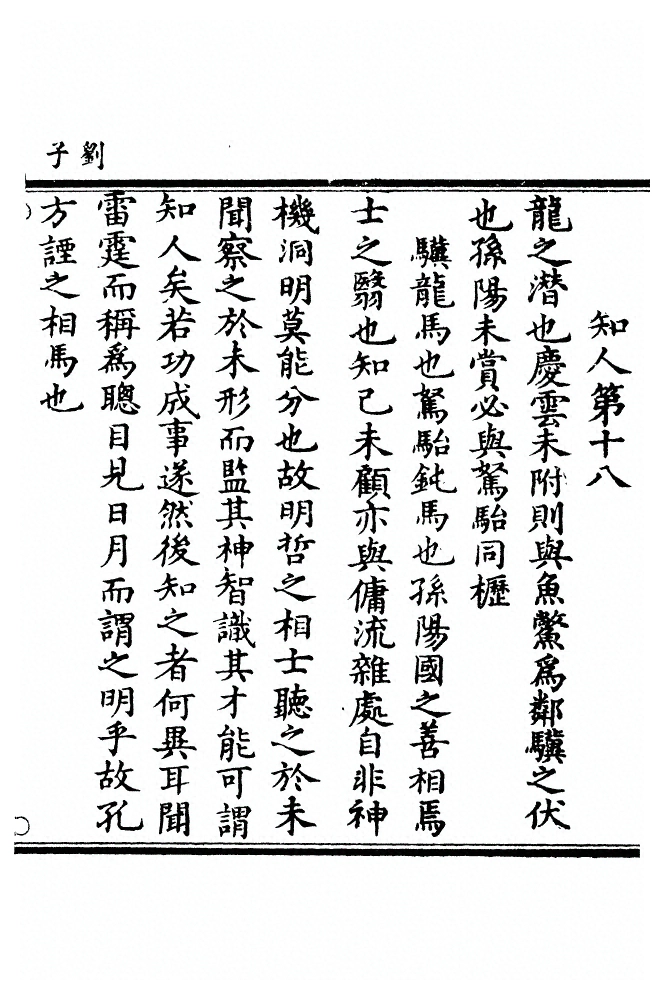 劉子
知人第十八
龍之潛也慶雲未附則與魚鱉爲鄰驥之伏
也孫陽未賞必與駑駘同櫪
驥龍馬也駑駘鈍馬也孫陽國之善相焉
士之翳也知己未顧亦與傭流雜處自非神
機洞明莫能分也故明哲之相士聽之於未
聞察之於未形而監其神智識其才能可謂
知人矣若功成事遂然後知之者何異耳聞
雷霆而稱爲聰目見日月而謂之明乎故孔
方諲之相馬也